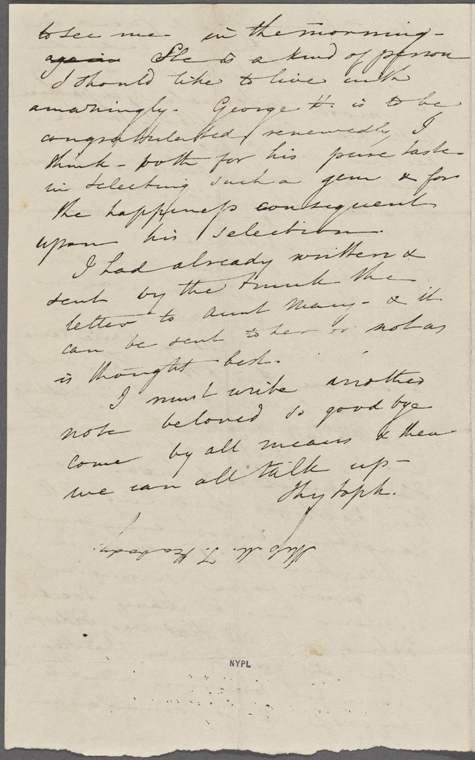 to see me in the morning -
again She is a kind of person
I should like to live with
amazingly. George H. is to be
congratulated renewedly, I
think - both for his pure taste
in selecting such a gem & for
the happiness consequent
upon his selection.
I had already written &
sent by the trunk the
letter to aunt Mary - & it
can be sent to her or not as
is thought best.
I must write another
note beloved so good bye
come by all means & then
we can all talk up -
Thy Soph.
Miss M. T. Peabody.
NYPL